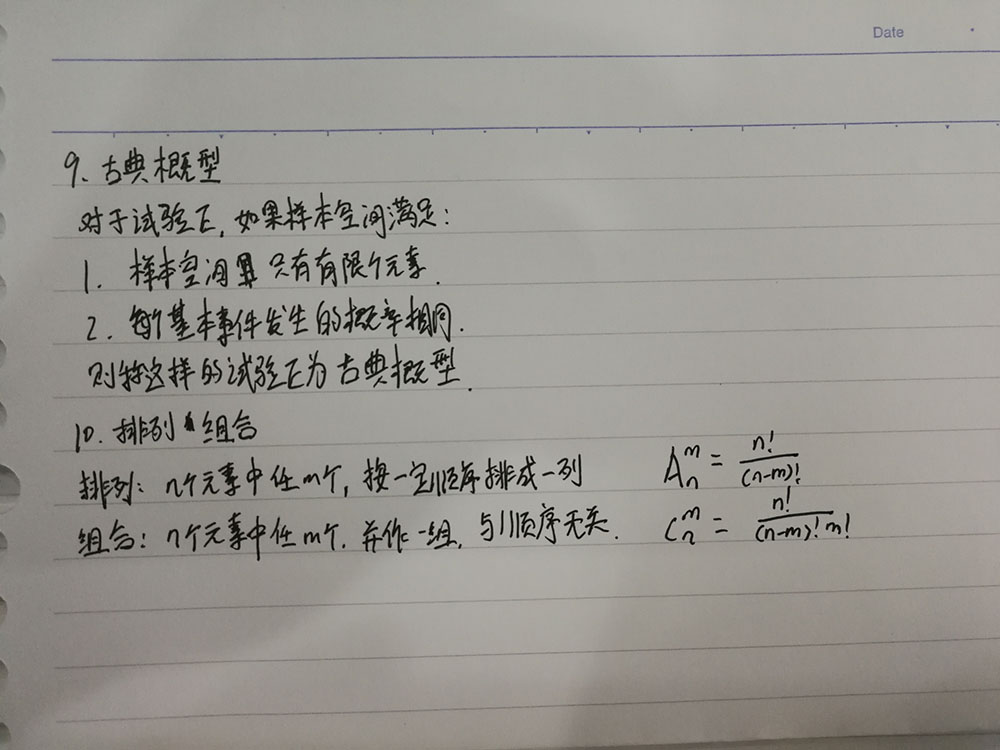 Date
9. 古典概型
对于试验E, 如果样本空间满足:
1. 样本空间只有有限个元素.
2. 每个基本事件发生的概率相同.
则称这样的试验E为古典概型.
10. 排列 组合
排列: n个元素中任m个, 按一定顺序排成一列 A_n^m = n!/(n-m)!
组合: n个元素中任m个. 并作一组, 与顺序无关. C_n^m = n!/(n-m)!m!